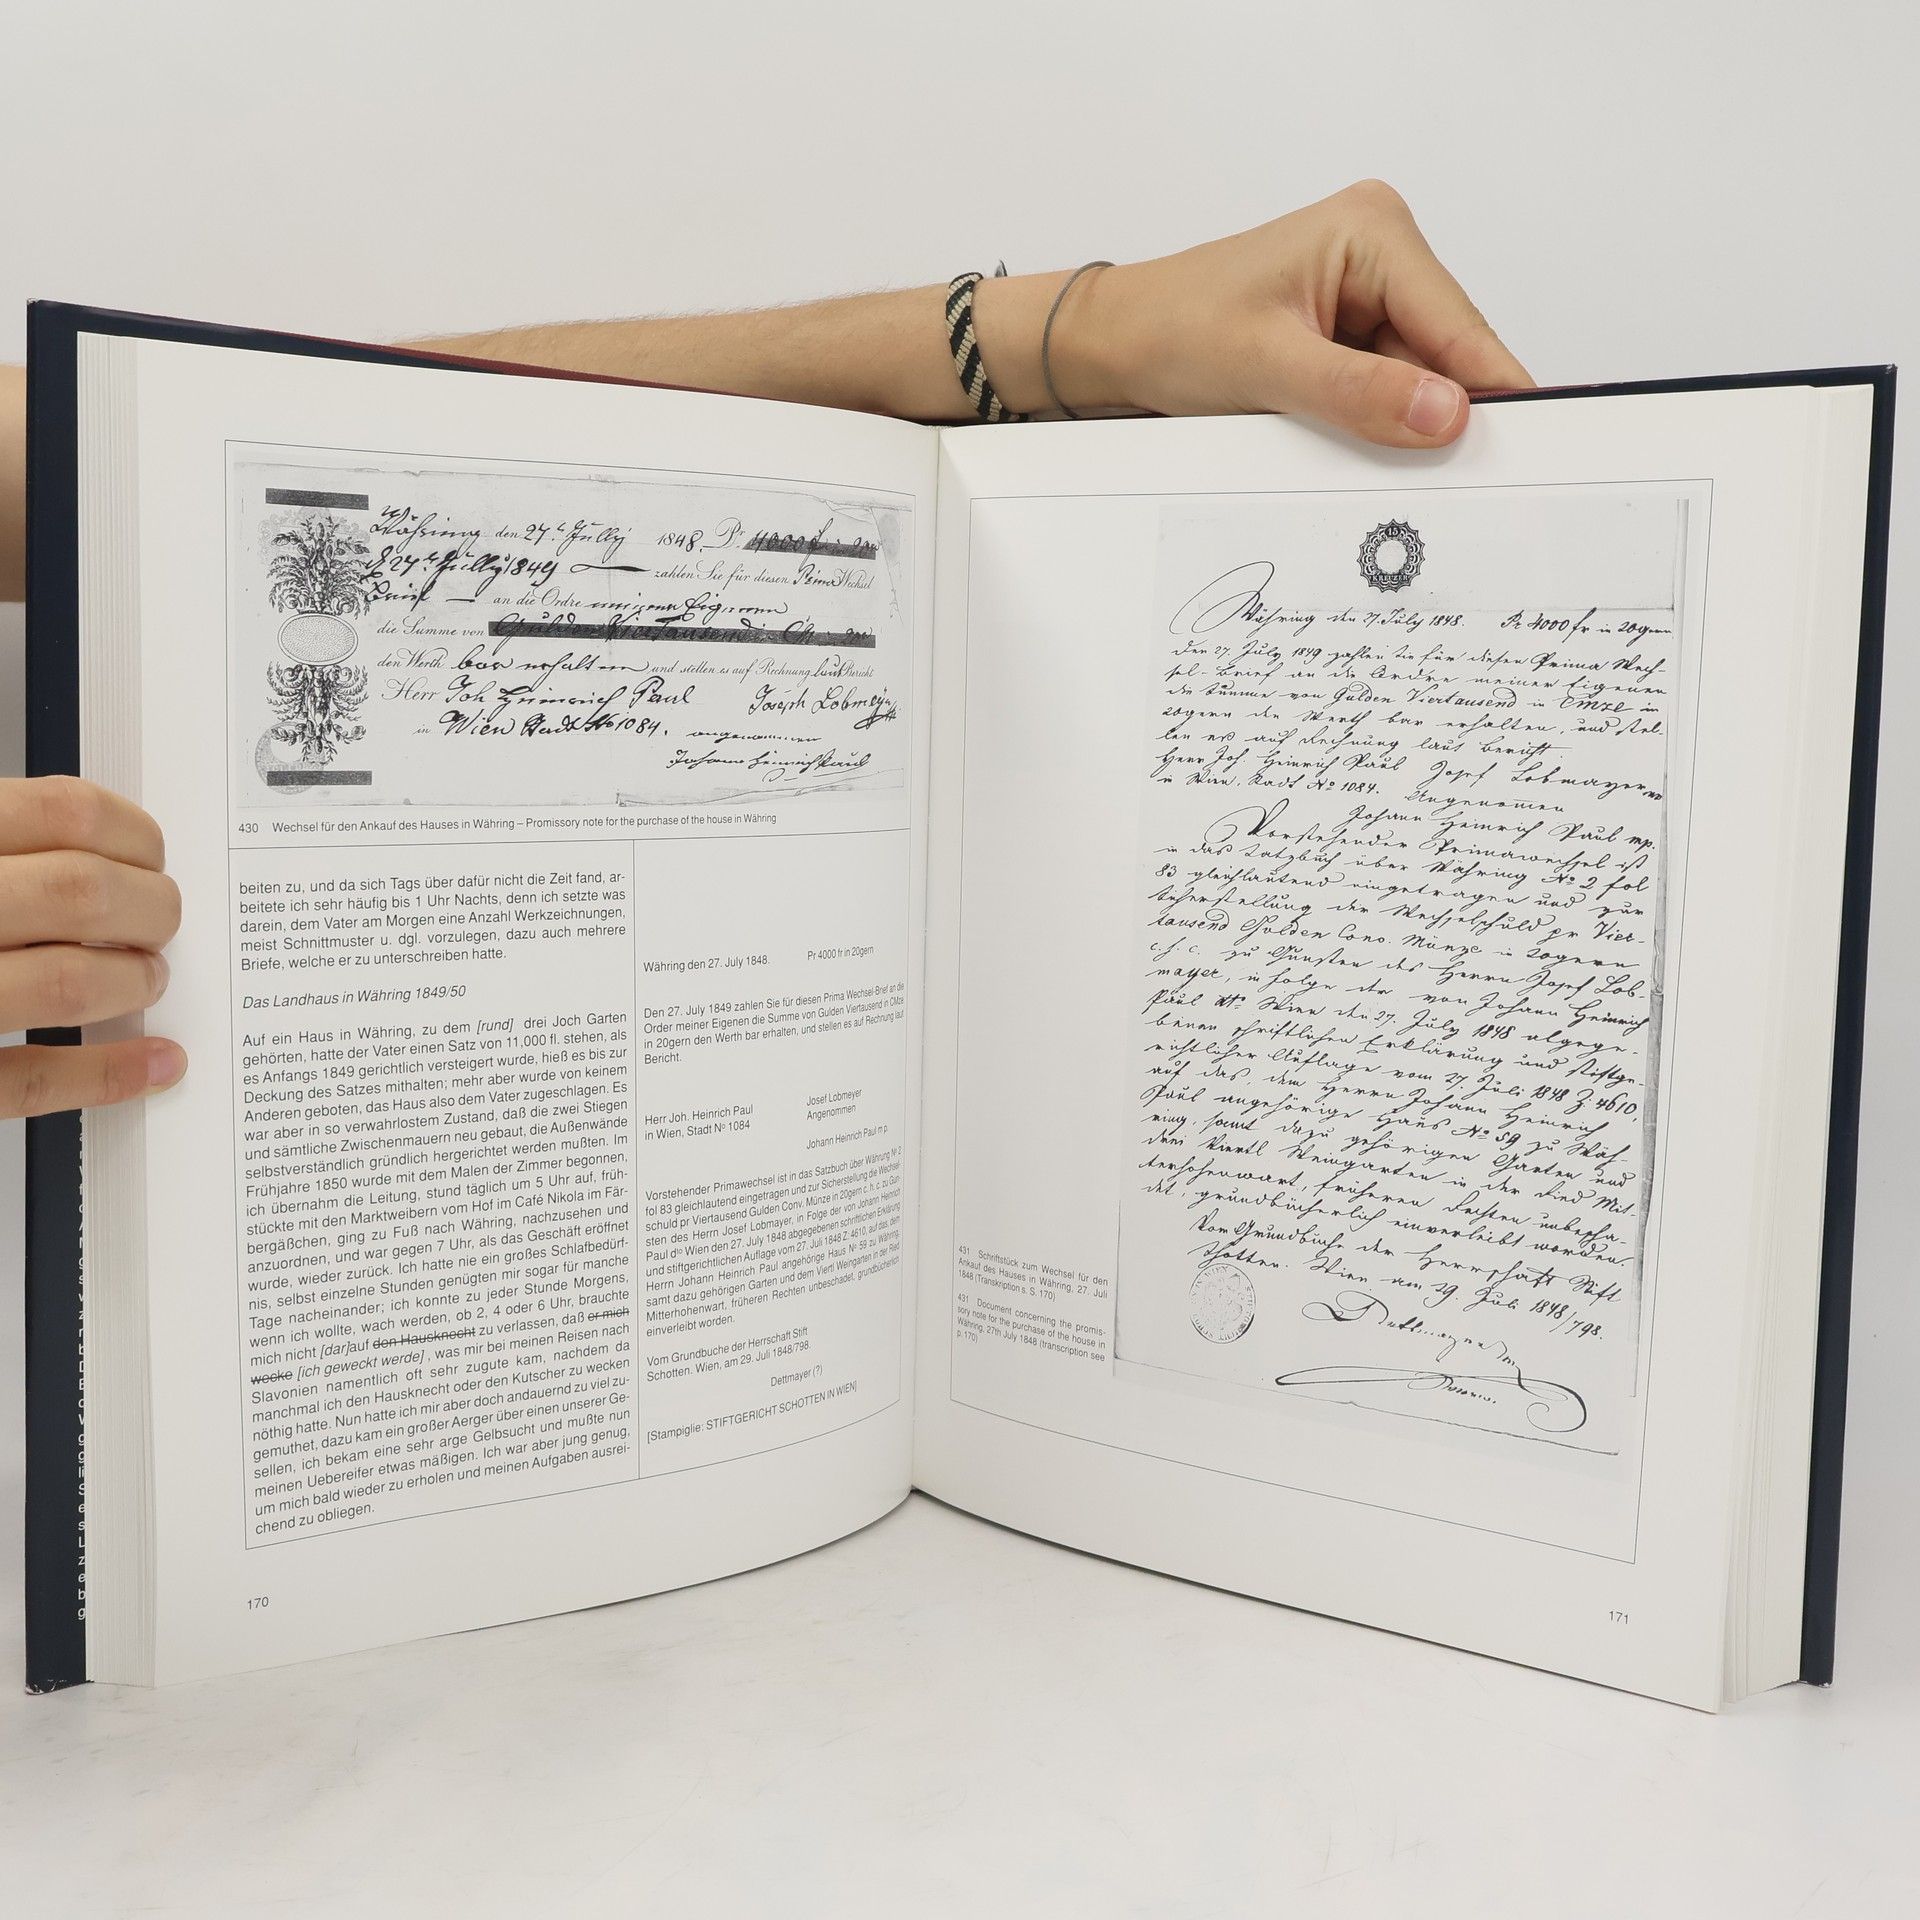 Währing den 27t July 1848. Pr. 4000 f
27t July 1849 — zahlen Sie für diesen Prima Wechsel
Brief — an die Ordre meiner Eigenen
die Summe von Gulden Viertausend in
den Werth bar erhalten und stellen es auf Rechnung laut Bericht
Herr Joh Heinrich Paul Joseph Lobmeyr
in Wien Stadt No 1084. angenommen
Johann Heinrich Paul
430 Wechsel für den Ankauf des Hauses in Währing – Promissory note for the purchase of the house in Währing
beiten zu, und da sich Tags über dafür nicht die Zeit fand, ar-
beitete ich sehr häufig bis 1 Uhr Nachts, denn ich setzte was
darein, dem Vater am Morgen eine Anzahl Werkzeichnungen,
meist Schnittmuster u. dgl. vorzulegen, dazu auch mehrere
Briefe, welche er zu unterschreiben hatte.
Das Landhaus in Währing 1849/50
Auf ein Haus in Währing, zu dem [rund] drei Joch Garten
gehörten, hatte der Vater einen Satz von 11,000 fl. stehen, als
es Anfangs 1849 gerichtlich versteigert wurde, hieß es bis zur
Deckung des Satzes mithalten; mehr aber wurde von keinem
Anderen geboten, das Haus also dem Vater zugeschlagen. Es
war aber in so verwahrlostem Zustand, daß die zwei Stiegen
und sämtliche Zwischenmauern neu gebaut, die Außenwände
selbstverständlich gründlich hergerichtet werden mußten. Im
Frühjahre 1850 wurde mit dem Malen der Zimmer begonnen,
ich übernahm die Leitung, stund täglich um 5 Uhr auf, früh-
stückte mit den Marktweibern vom Hof im Café Nikola im Fär-
bergäßchen, ging zu Fuß nach Währing, nachzusehen und
anzuordnen, und war gegen 7 Uhr, als das Geschäft eröffnet
wurde, wieder zurück. Ich hatte nie ein großes Schlafbedürf-
nis, selbst einzelne Stunden genügten mir sogar für manche
Tage nacheinander; ich konnte zu jeder Stunde Morgens,
wenn ich wollte, wach werden, ob 2, 4 oder 6 Uhr, brauchte
mich nicht [dar]auf den Hausknecht zu verlassen, daß er mich
wecke [ich geweckt werde] , was mir bei meinen Reisen nach
Slavonien namentlich oft sehr zugute kam, nachdem da
manchmal ich den Hausknecht oder den Kutscher zu wecken
nöthig hatte. Nun hatte ich mir aber doch andauernd zu viel zu-
gemuthet, dazu kam ein großer Aerger über einen unserer Ge-
sellen, ich bekam eine sehr arge Gelbsucht und mußte nun
meinen Uebereifer etwas mäßigen. Ich war aber jung genug,
um mich bald wieder zu erholen und meinen Aufgaben ausrei-
chend zu obliegen.
Währing den 27. July 1848. Pr 4000 fr in 20gern
Den 27. July 1849 zahlen Sie für diesen Prima Wechsel-Brief an die
Order meiner Eigenen die Summe von Gulden Viertausend in CMze
in 20gern den Werth bar erhalten, und stellen es auf Rechnung laut
Bericht.
Josef Lobmeyer
Herr Joh. Heinrich Paul Angenommen
in Wien, Stadt No 1084
Johann Heinrich Paul m p.
Vorstehender Primawechsel ist in das Satzbuch über Währung No 2
fol 83 gleichlautend eingetragen und zur Sicherstellung die Wechsel-
schuld pr Viertausend Gulden Conv. Münze in 20gern c. h. c. zu Gun-
sten des Herrn Josef Lobmayer, in Folge der von Johann Heinrich
Paul dto Wien den 27. July 1848 abgegebenen schriftlichen Erklärung
und stiftgerichtlichen Auflage vom 27. Juli 1848 Z: 4610, auf das dem
Herrn Johann Heinrich Paul angehörige Haus No 59 zu Währing,
samt dazu gehörigen Garten und dem Viertl Weingarten in der Ried
Mitterhohenwart, früheren Rechten unbeschadet, grundbücherlich
einverleibt worden.
Vom Grundbuche der Herrschaft Stift
Schotten. Wien, am 29. Juli 1848/798.
Dettmayer (?)
[Stampiglie: STIFTGERICHT SCHOTTEN IN WIEN]
170
15
KREUZER
Währing den 27. July 1848. Pr 4000 fr in 20gern
Den 27. July 1849 zahlen Sie für diesen Prima Wech-
sel-Brief an die Ordre meiner Eigenen
die Summe von Gulden Viertausend in CMze in
20gern den Werth bar erhalten, und stel-
len es auf Rechnung laut Bericht
Herr Joh. Heinrich Paul Josef Lobmayer
in Wien, Stadt No 1084. Angenommen
Johann Heinrich Paul mp.
Vorstehender Primawechsel ist
in das Satzbuch über Währing No 2 fol
83 gleichlautend eingetragen und zur
Sicherstellung der Wechselschuld pr Vier-
tausend Gulden Conv. Münze in 20gern
c. s. c. zu Gunsten des Herrn Josef Lob-
mayer, in Folge der von Johann Heinrich
Paul dto Wien den 27. July 1848 abgege-
benen schriftlichen Erklärung und stiftge-
richtlicher Auflage vom 27. Juli 1848 Z: 4610,
auf das, dem Herrn Johann Heinrich
Paul angehörige Haus No 59 zu Wäh-
ring, samt dazu gehörigen Garten und
drei Viertl Weingarten in der Ried Mit-
terhohenwart, früheren Rechten unbescha-
det, grundbücherlich einverleibt worden.
Vom Grundbuche der Herrschaft Stift
Schotten. Wien am 29. Juli 1848/798.
Dettmayer
431 Schriftstück zum Wechsel für den
Ankauf des Hauses in Währing, 27. Juli
1848 (Transkription s. S. 170)
431 Document concerning the promis-
sory note for the purchase of the house in
Währing, 27th July 1848 (transcription see
p. 170)
171